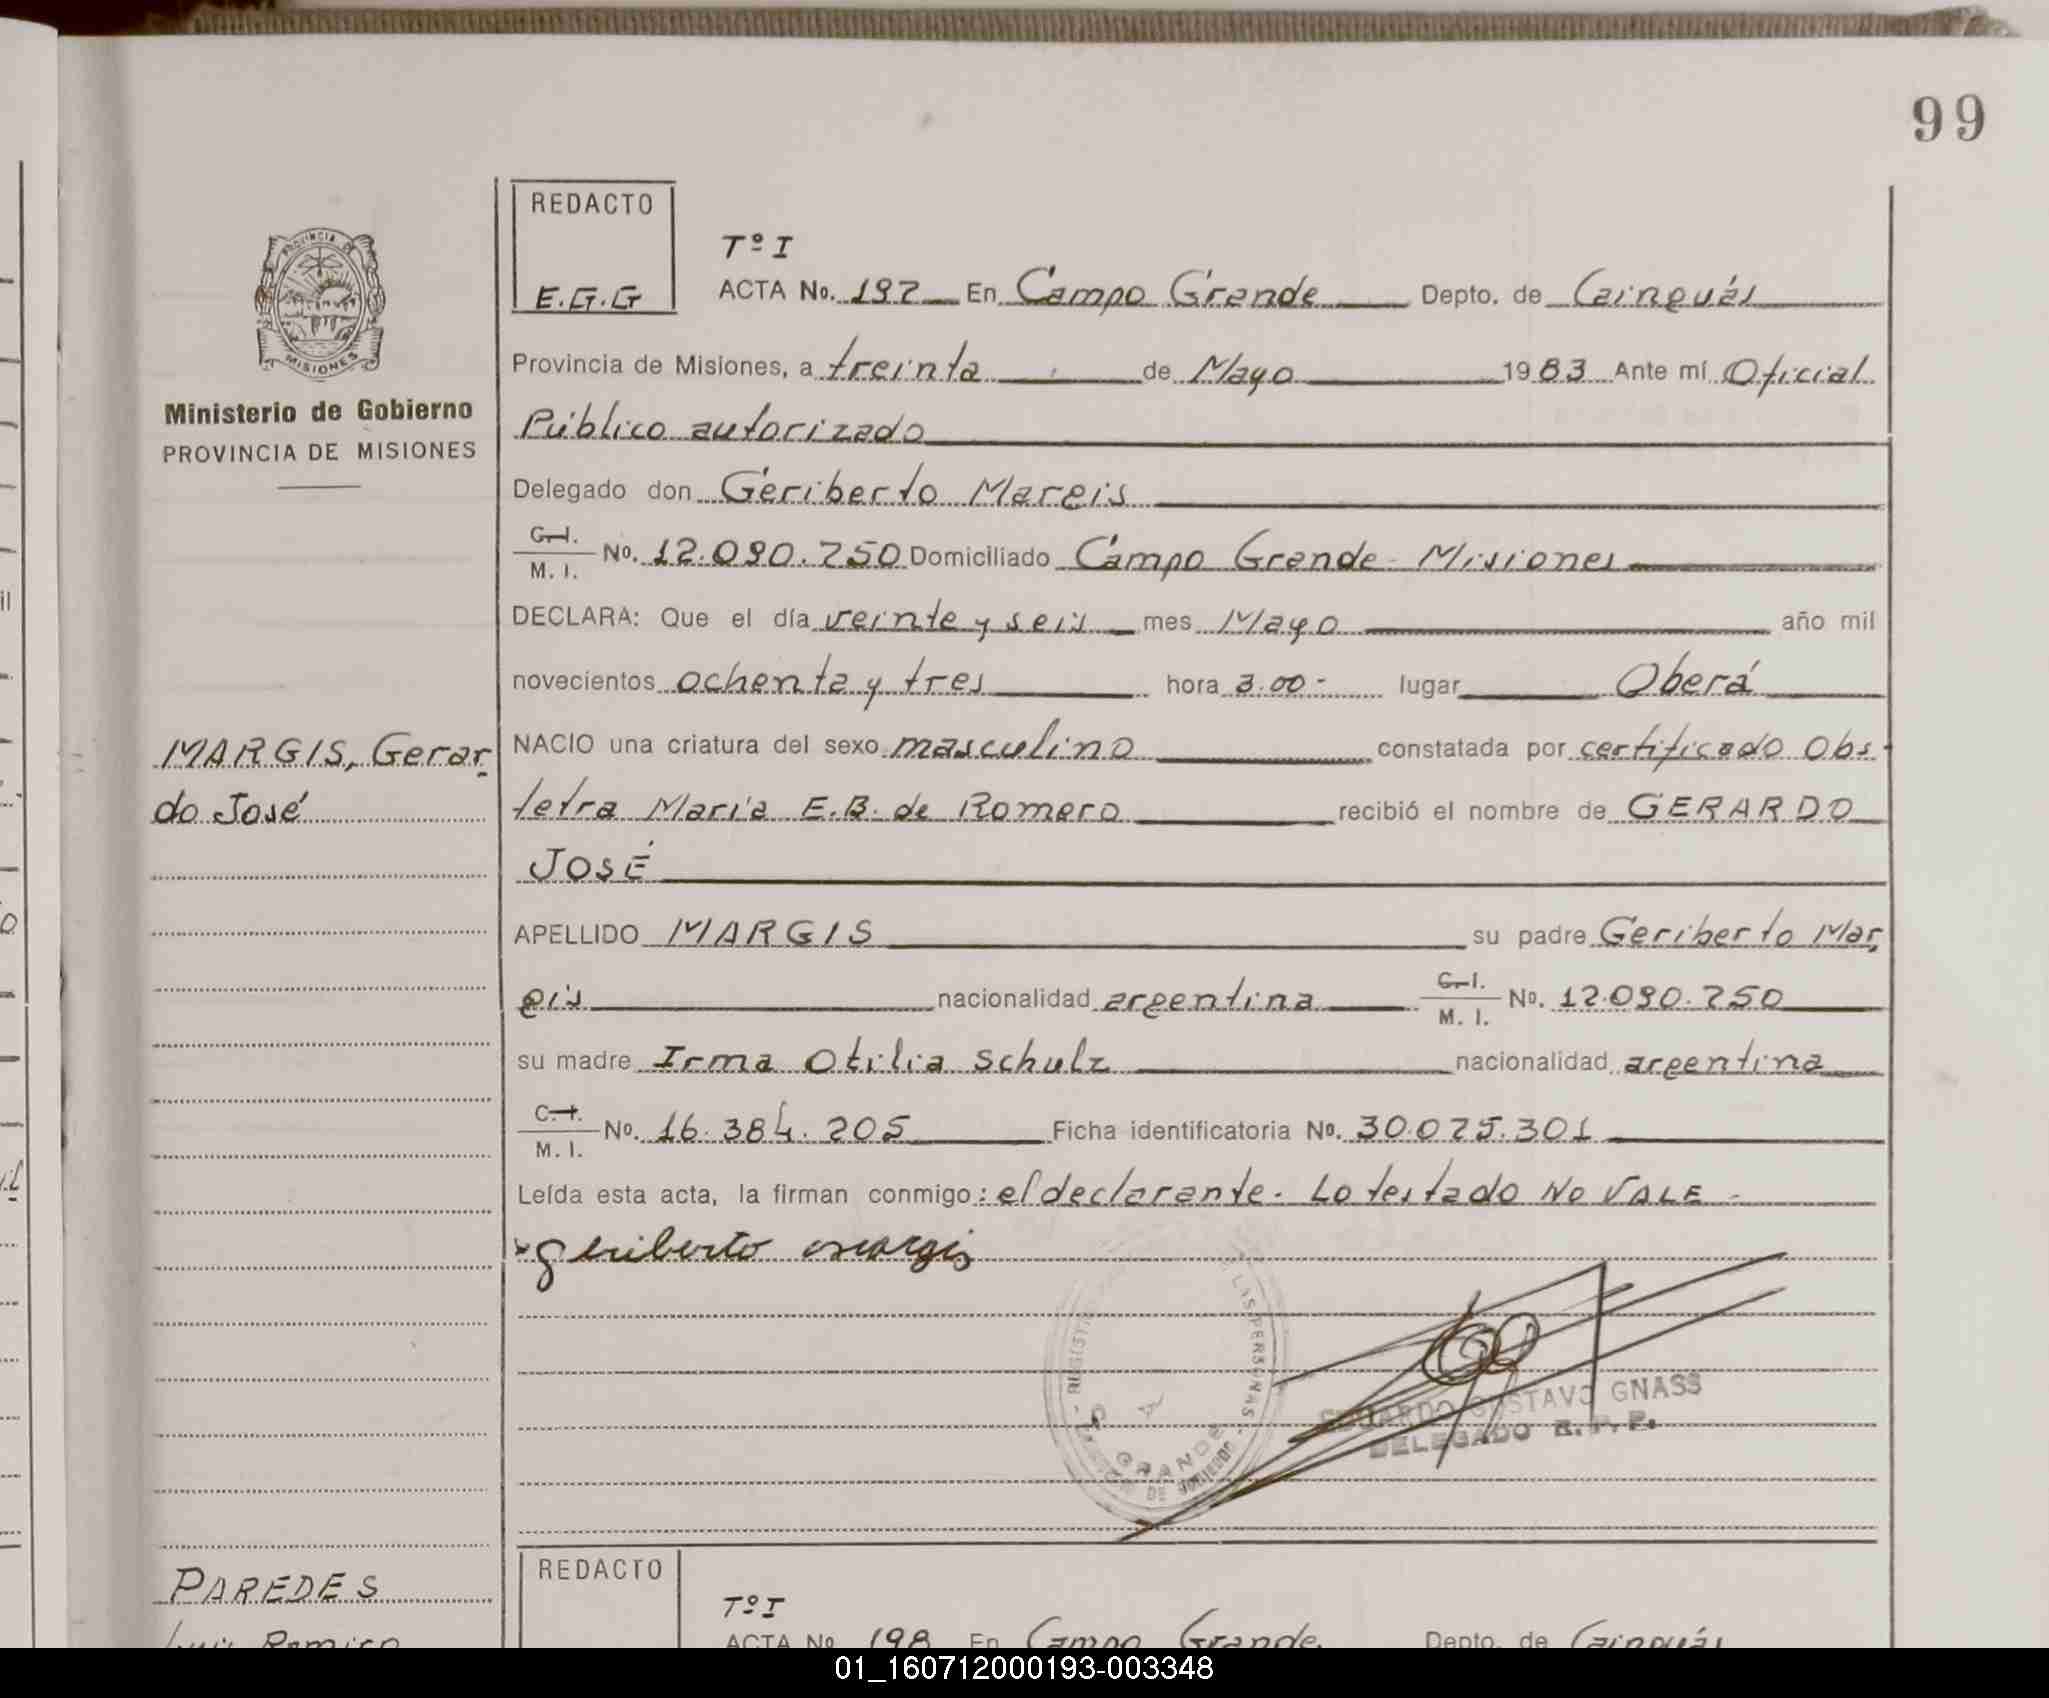 99
REDACTO
E.G.G
Tº I
ACTA No. 197 En Campo Grande Depto. de Cainguás
Provincia de Misiones, a treinta de Mayo 1983 Ante mí Oficial
Público autorizado
Delegado don Geriberto Margis
C.I. M. I. No. 12.090.750 Domiciliado Campo Grande - Misiones
DECLARA: Que el día veinte y seis mes Mayo año mil
novecientos ochenta y tres hora 3.00- lugar Oberá
NACIO una criatura del sexo masculino constatada por certificado Obs-
tetra María E.B. de Romero recibió el nombre de GERARDO
JOSÉ
APELLIDO MARGIS su padre Geriberto Mar-
gis nacionalidad argentina C.I. M. I. No. 12.090.750
su madre Irma Otilia Schulz nacionalidad argentina
C.I. M. I. No. 16.384.205 Ficha identificatoria No. 30.075.301
Leída esta acta, la firman conmigo: el declarante. Lo testado NO VALE -
geriberto margis
EDUARDO GUSTAVO GNASS
DELEGADO R. P. P.
PROVINCIA DE
MISIONES
Ministerio de Gobierno
PROVINCIA DE MISIONES
MARGIS, Gerar-
do José
PAREDES
Luis Ramiro
REDACTO
Tº I
ACTA No. 198 En Campo Grande Depto. de Cainguás
01_160712000193-003348